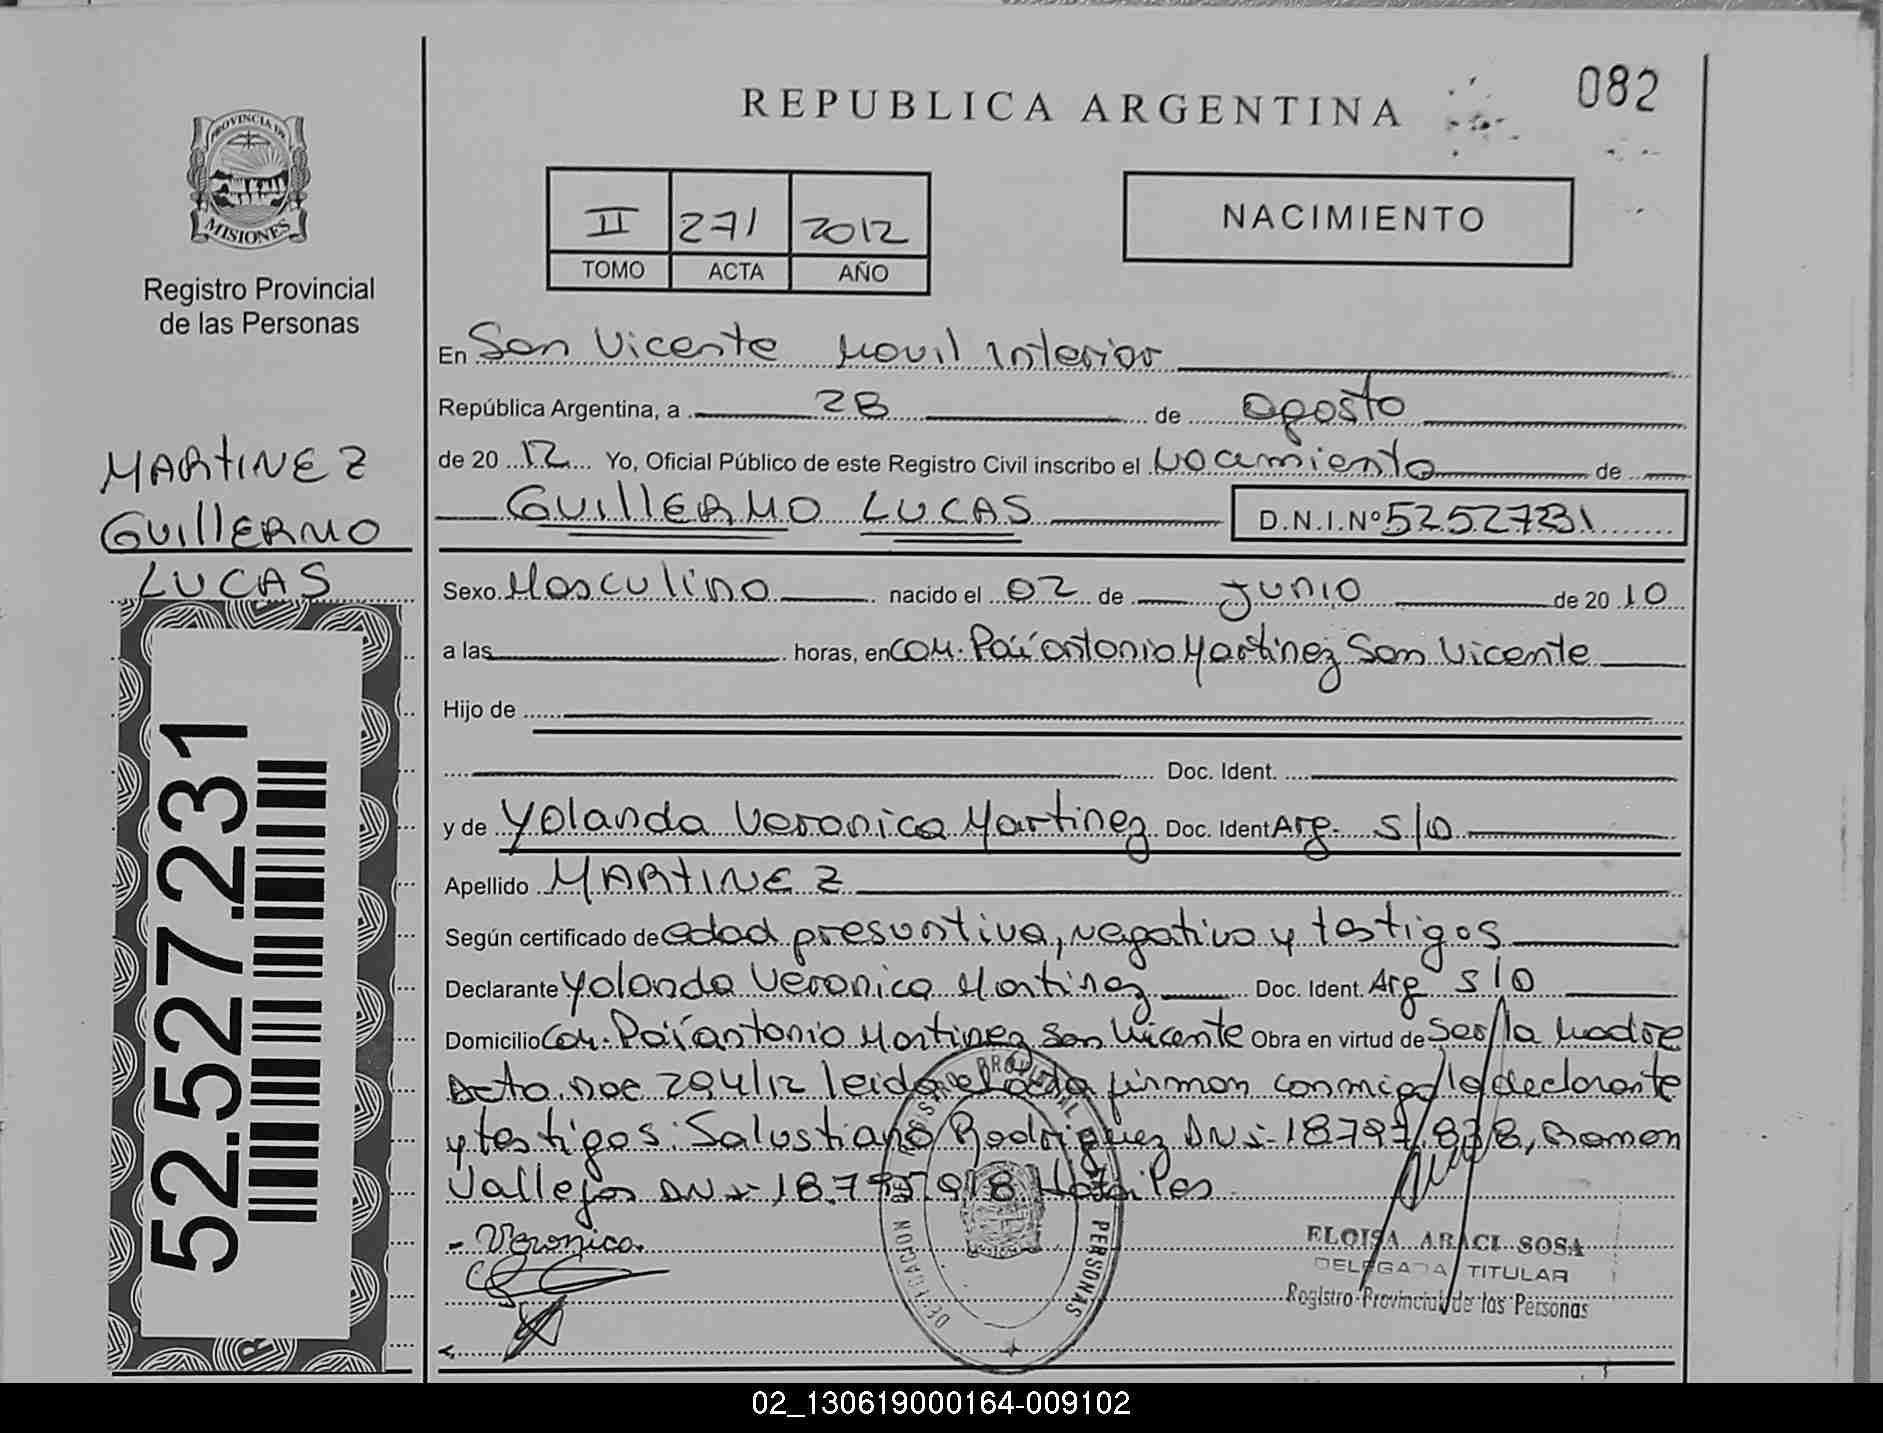 REPUBLICA ARGENTINA
082
PROVINCIA DE
MISIONES
Registro Provincial
de las Personas
II 271 2012
TOMO ACTA AÑO
NACIMIENTO
En San Vicente Movil Interior
República Argentina, a 28 de agosto
de 20 12 Yo, Oficial Público de este Registro Civil inscribo el nacimiento de
GUILLERMO LUCAS D.N.I.Nº 52527231
MARTINEZ
GUILLERMO
LUCAS
52.527.231
Sexo Masculino nacido el 02 de Junio de 20 10
a las horas, en Com. Pai Antonio Martinez San Vicente
Hijo de
Doc. Ident.
y de Yolanda Veronica Martinez Doc. Ident Arg. S/D
Apellido MARTINEZ
Según certificado de edad presuntiva, negativo y testigos
Declarante Yolanda Veronica Martinez Doc. Ident. Arg S/D
Domicilio Com. Pai Antonio Martinez San Vicente Obra en virtud de Ser la madre
Dcto. Nac 294/12 leida el acta firman conmigo la declarante
y testigos: Salustiano Rodriguez DNI 18797838, Ramon
Vallejos DNI 18.795.918
- Veronica.
REGISTRO PROVINCIAL DE LAS PERSONAS
DELEGACION
ELOISA ARACI SOSA
DELEGADA TITULAR
Registro Provincial de las Personas
02_130619000164-009102